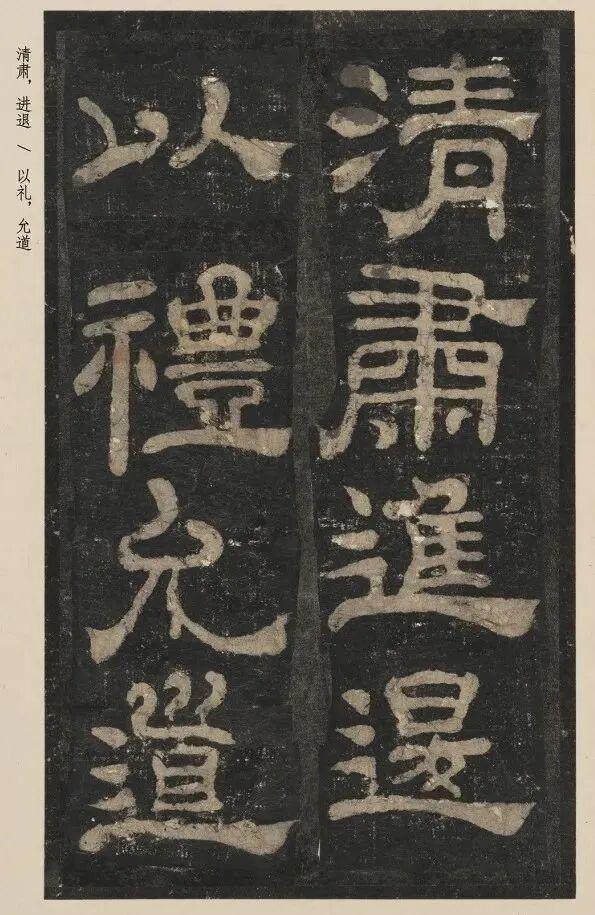 清肅進退
以禮允道
清肃，进退 \ 以礼，允道